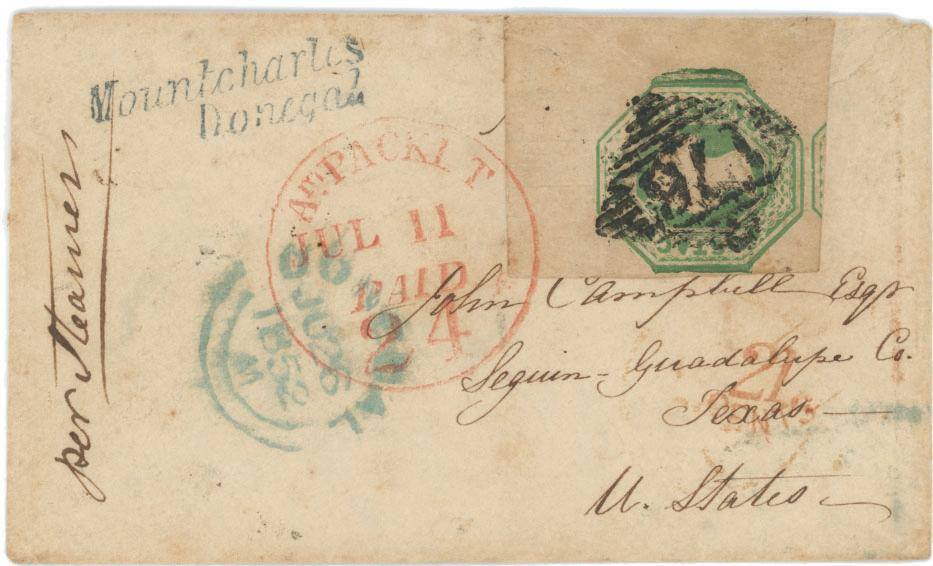 Mountcharles
Donegal
per Steamer
AM. PACKET
JUL 11
PAID
24
John Campbell Esqr
Seguin - Guadalupe Co.
Texas —
U. States -